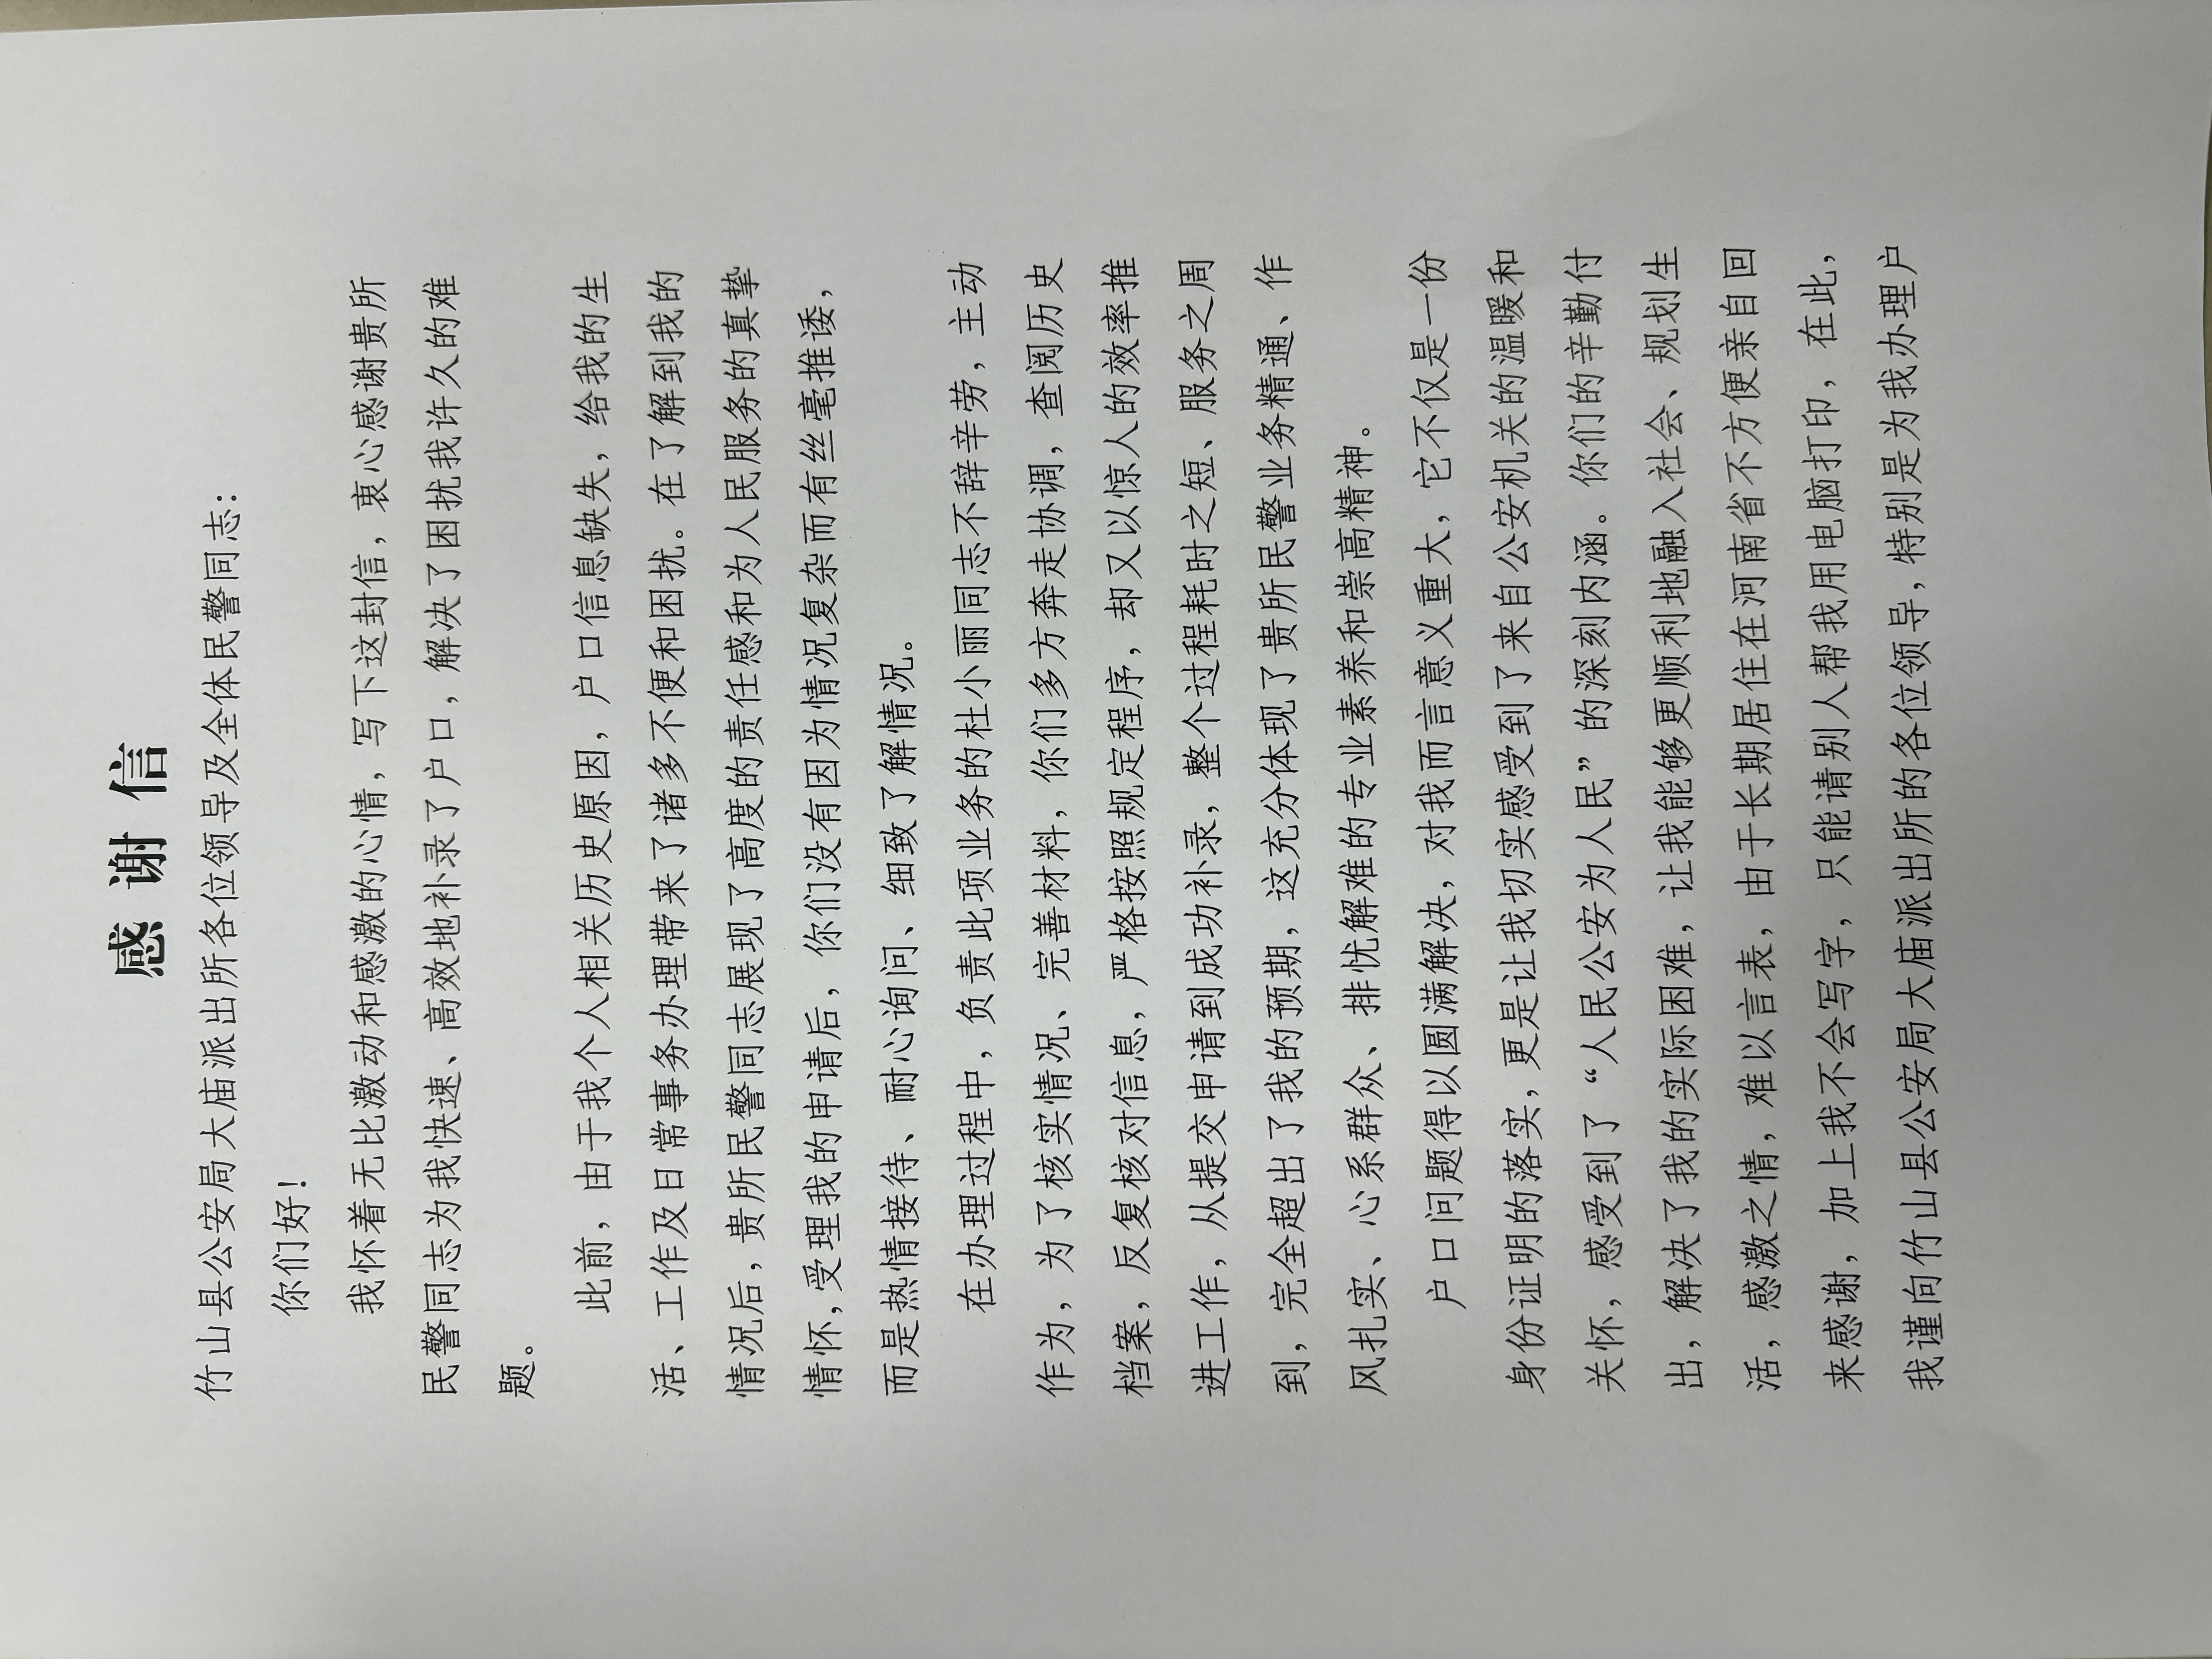 感谢信
竹山县公安局大庙派出所各位领导及全体民警同志：
你们好！
我怀着无比激动和感激的心情，写下这封信，衷心感谢贵所
民警同志为我快速、高效地补录了户口，解决了困扰我许久的难
题。
此前，由于我个人相关历史原因，户口信息缺失，给我的生
活、工作及日常事务办理带来了诸多不便和困扰。在了解到我的
情况后，贵所民警同志展现了高度的责任感和为人民服务的真挚
情怀，受理我的申请后，你们没有因为情况复杂而有丝毫推诿，
而是热情接待、耐心询问、细致了解情况。
在办理过程中，负责此项业务的杜小丽同志不辞辛劳，主动
作为，为了核实情况、完善材料，你们多方奔走协调，查阅历史
档案，反复核对信息，严格按照规定程序，却又以惊人的效率推
进工作，从提交申请到成功补录，整个过程耗时之短、服务之周
到，完全超出了我的预期，这充分体现了贵所民警业务精通、作
风扎实、心系群众、排忧解难的专业素养和崇高精神。
户口问题得以圆满解决，对我而言意义重大，它不仅是一份
身份证明的落实，更是让我切实感受到了来自公安机关的温暖和
关怀，感受到了“人民公安为人民”的深刻内涵。你们的辛勤付
出，解决了我的实际困难，让我能够更顺利地融入社会、规划生
活，感激之情，难以言表，由于长期居住在河南省不方便亲自回
来感谢，加上我不会写字，只能请别人帮我用电脑打印，在此，
我谨向竹山县公安局大庙派出所的各位领导，特别是为我办理户